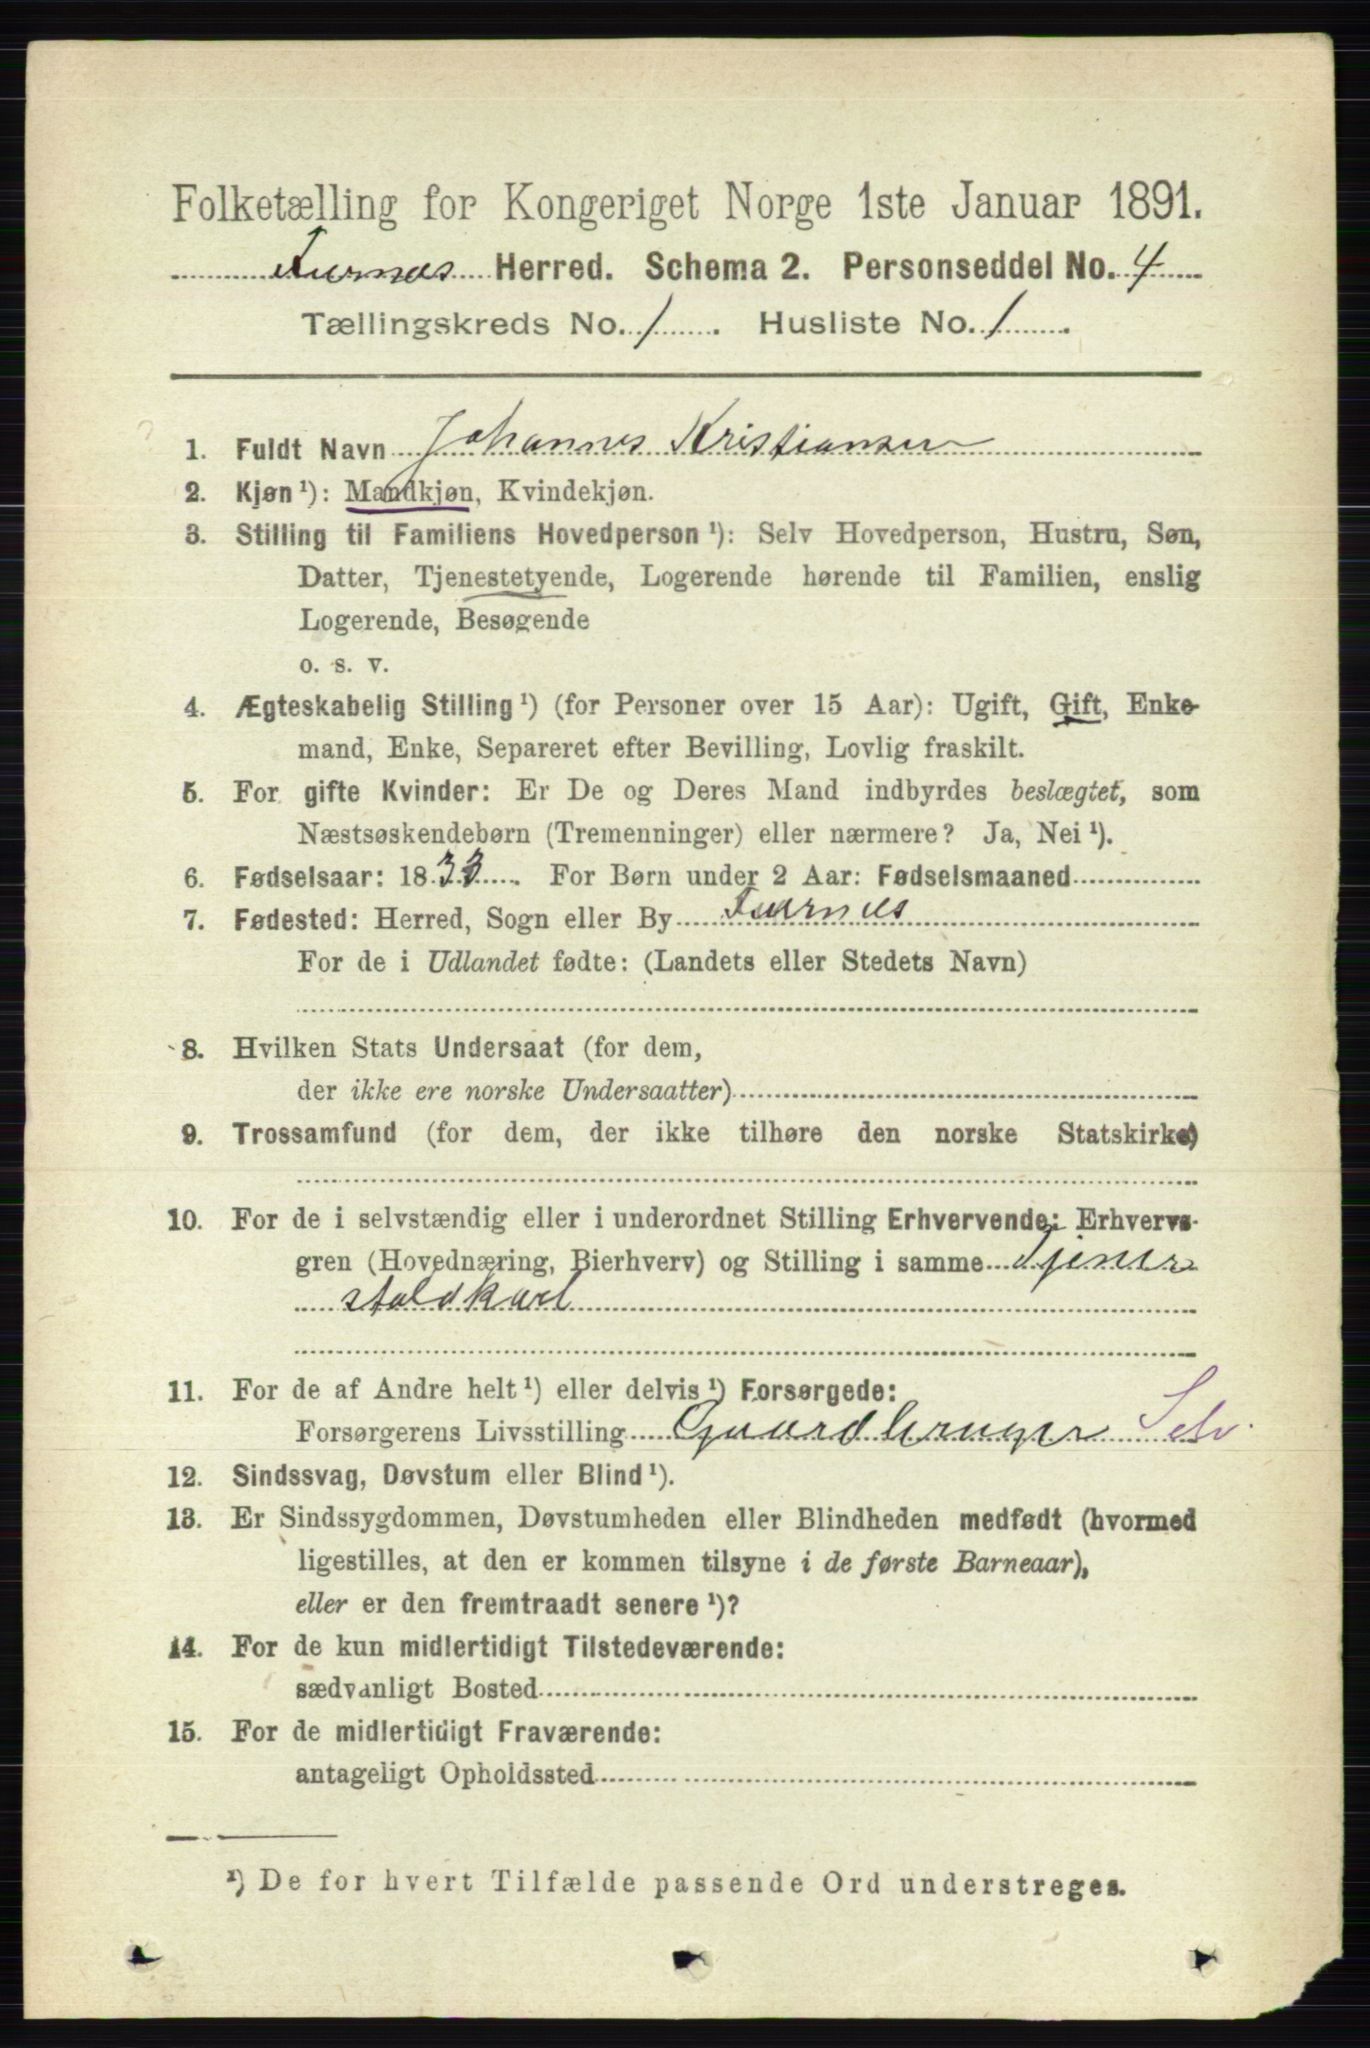 Folketælling for Kongeriget Norge 1ste Januar 1891.
Furnes Herred. Schema 2. Personseddel No. 4
Tællingskreds No. 1. Husliste No. 1.
1. Fuldt Navn Johannes Kristiansen
2. Kjøn ¹): Mandkjøn, Kvindekjøn.
3. Stilling til Familiens Hovedperson ¹): Selv Hovedperson, Hustru, Søn,
Datter, Tjenestetyende, Logerende hørende til Familien, enslig
Logerende, Besøgende
o. s. v.
4. Ægteskabelig Stilling ¹) (for Personer over 15 Aar): Ugift, Gift, Enke-
mand, Enke, Separeret efter Bevilling, Lovlig fraskilt.
5. For gifte Kvinder: Er De og Deres Mand indbyrdes beslægtet, som
Næstsøskendebørn (Tremenninger) eller nærmere? Ja, Nei ¹).
6. Fødselsaar: 1833. For Børn under 2 Aar: Fødselsmaaned
7. Fødested: Herred, Sogn eller By Furnes
For de i Udlandet fødte: (Landets eller Stedets Navn)
8. Hvilken Stats Undersaat (for dem,
der ikke ere norske Undersaatter)
9. Trossamfund (for dem, der ikke tilhøre den norske Statskirke)
10. For de i selvstændig eller i underordnet Stilling Erhvervende: Erhvervs-
gren (Hovednæring, Bierhverv) og Stilling i samme Tjener
staldkarl
11. For de af Andre helt ¹) eller delvis ¹) Forsørgede:
Forsørgerens Livsstilling Gaardbruger Selv.
12. Sindssvag, Døvstum eller Blind ¹).
13. Er Sindssygdommen, Døvstumheden eller Blindheden medfødt (hvormed
ligestilles, at den er kommen tilsyne i de første Barneaar),
eller er den fremtraadt senere ¹)?
14. For de kun midlertidigt Tilstedeværende:
sædvanligt Bosted
15. For de midlertidigt Fraværende:
antageligt Opholdssted
¹) De for hvert Tilfælde passende Ord understreges.